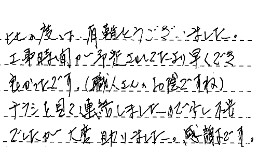 この度は有難とうございました。
工事時間が予定されてたより早くでき
良かったです。(職人さんのお陰ですね)
チラシを見て連絡しましたので少し不安
でしたが大変助りました。感謝です。